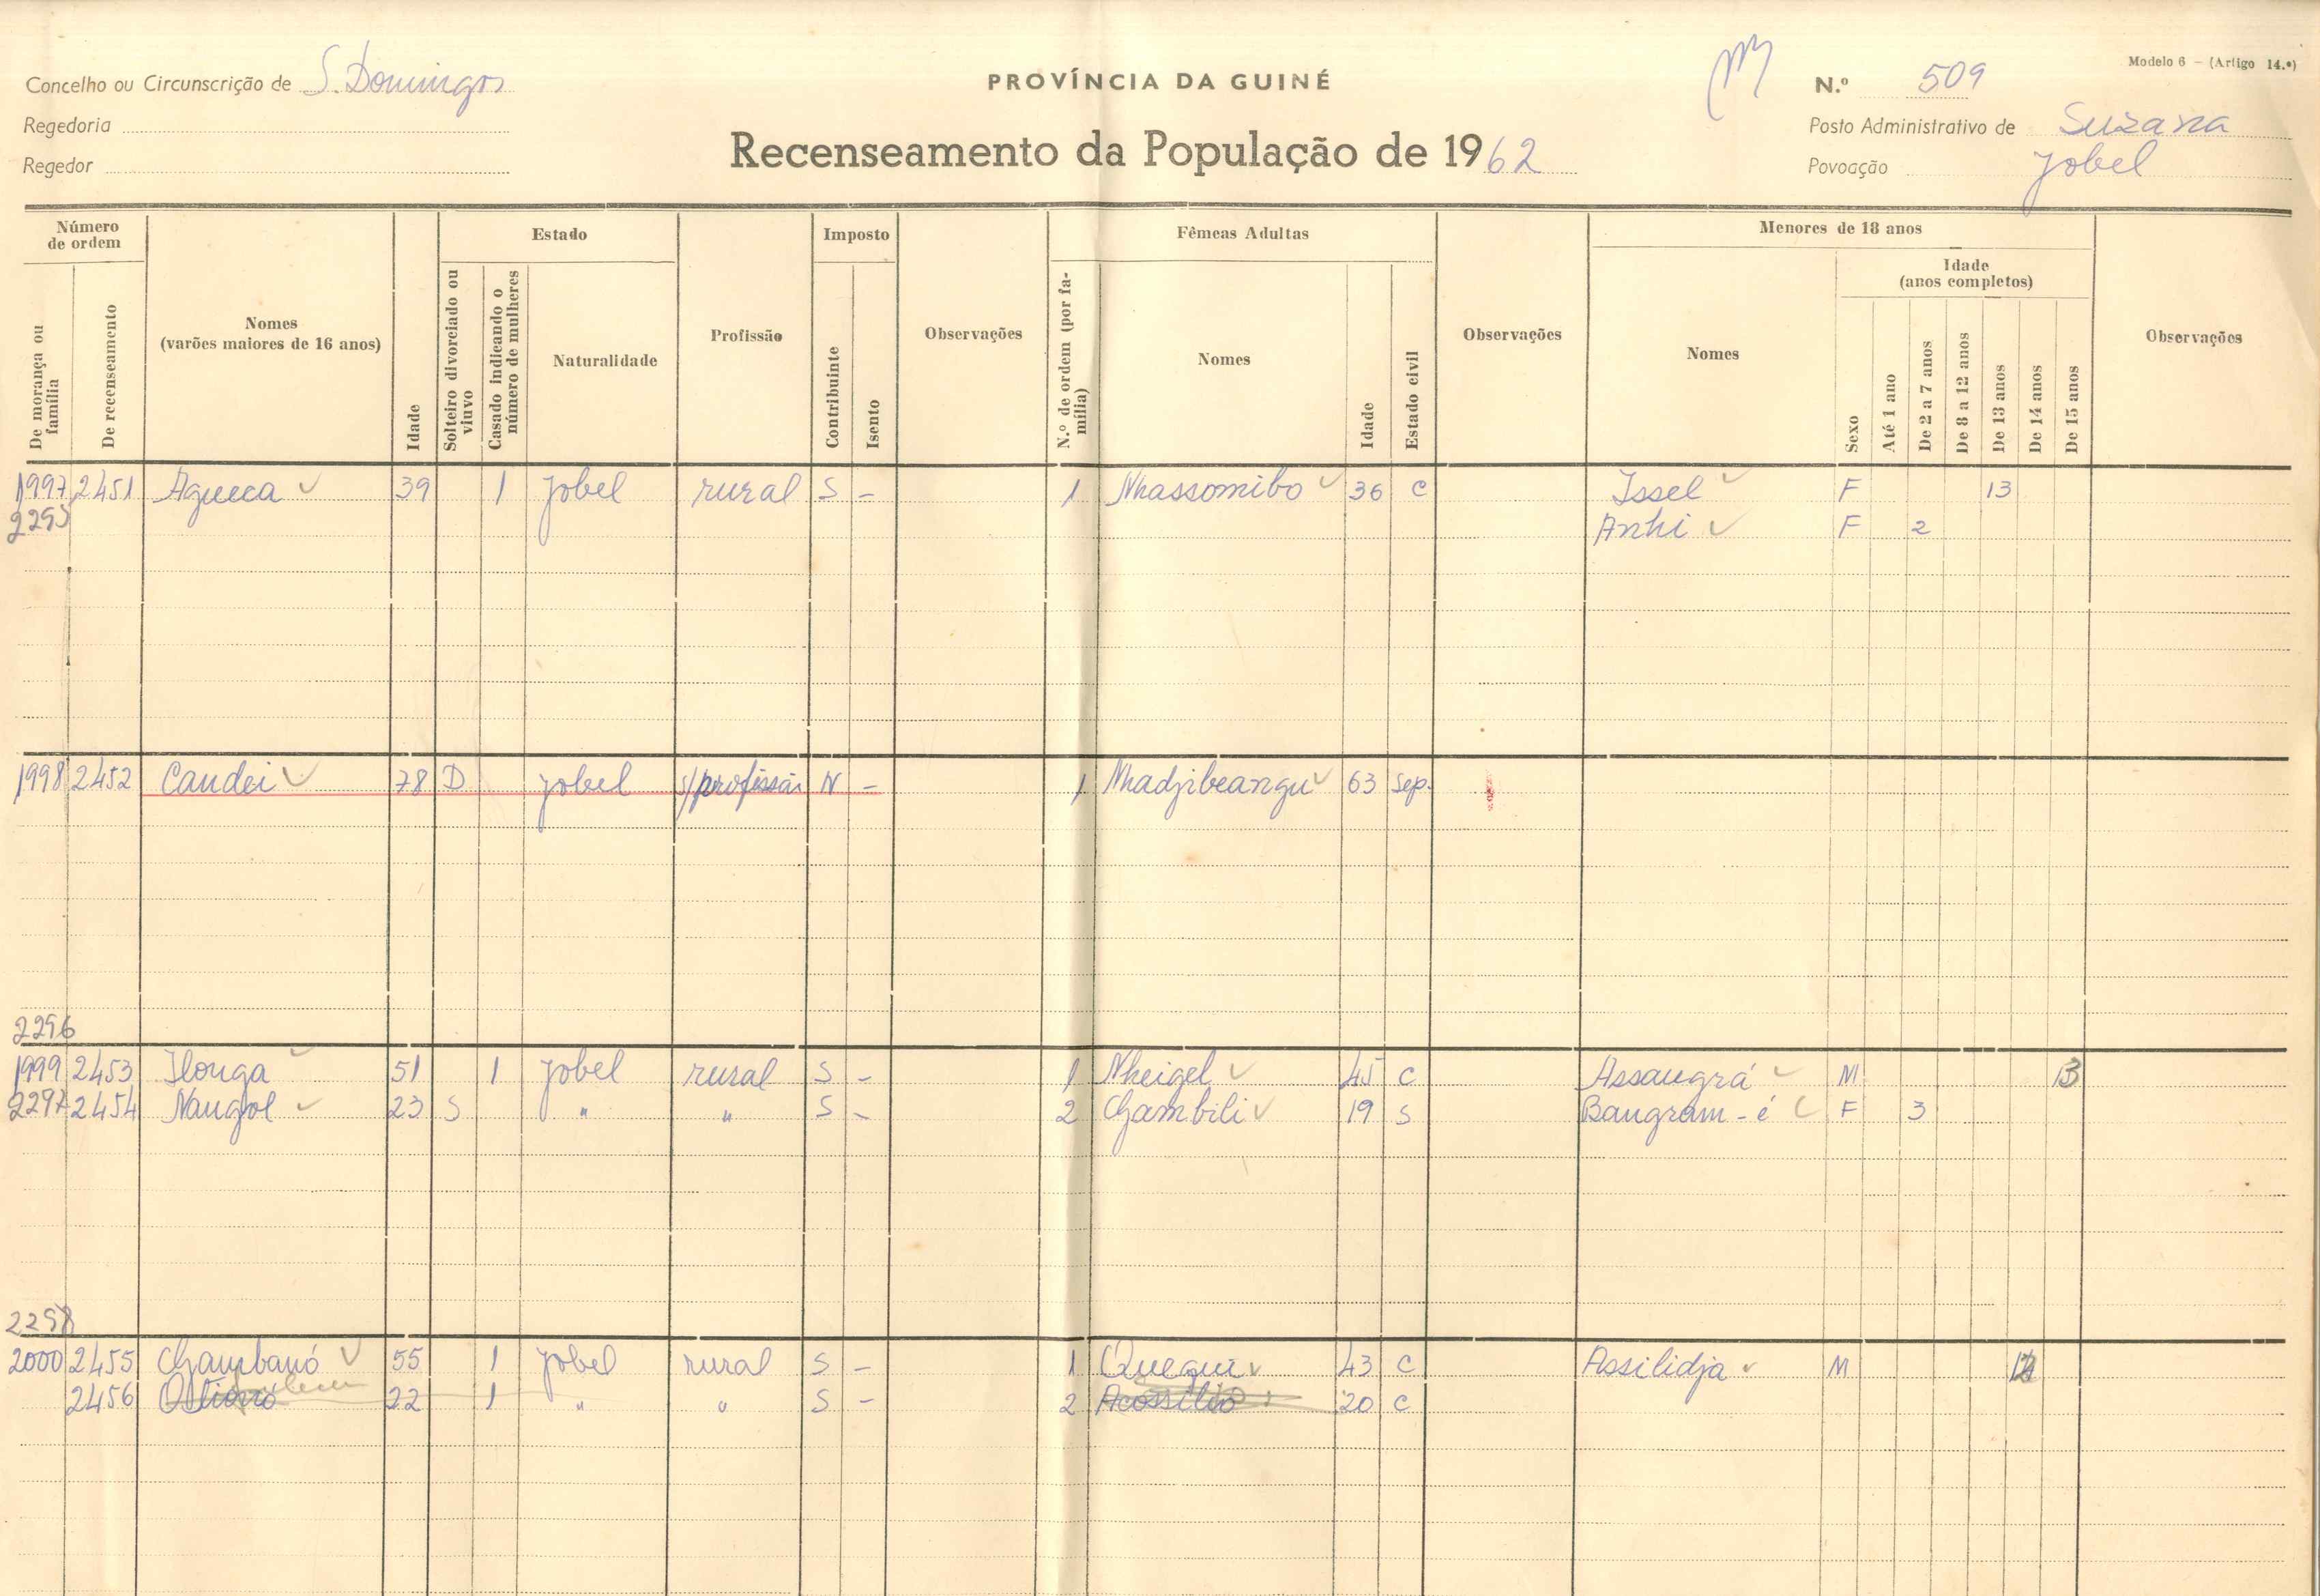 Concelho ou Circunscrição de S. Domingos
Regedoria
Regedor
PROVÍNCIA DA GUINÉ
Recenseamento da População de 1962
Modelo 6 — (Artigo 14.º)
N.º 509
Posto Administrativo de Suzana
Povoação Jobel
Número de ordem
De morança ou família
De recenseamento
Nomes (varões maiores de 16 anos)
Idade
Estado
Solteiro divorciado ou viuvo
Casado indicando o número de mulheres
Naturalidade
Profissão
Imposto
Contribuinte
Isento
Observações
N.º de ordem (por família)
Fêmeas Adultas
Nomes
Idade
Estado civil
Observações
Menores de 18 anos
Nomes
Sexo
Idade (anos completos)
Até 1 ano
De 2 a 7 anos
De 8 a 12 anos
De 13 anos
De 14 anos
De 15 anos
Observações
1997 2451 Agueca 39 1 Jobel rural S - 1 Nhassomibo 36 C Issel F 13
2295 Anhi F 2
1998 2452 Candei 78 D Jobel s/profissão N - 1 Nhadjibeangu 63 Sep.
2296
1999 2453 Ilonga 51 1 Jobel rural S - 1 Nheigel 45 C Assaugrá M
2297 2454 Naugol 23 S " " S - 2 Chambili 19 S Baugram-é F 3
2298
2000 2455 Chambanó 55 1 Jobel rural S - 1 Quequi 43 C Assilidja M
2456 22 1 " " S - 2 Acossilió 20 C